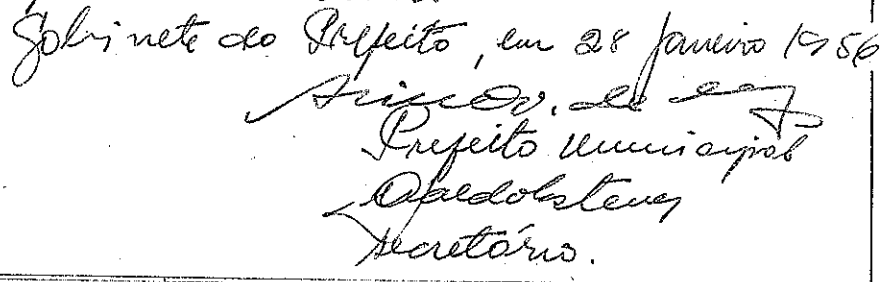 Gabinete do Prefeito, em 28 janeiro 1956
Prefeito Municipal
Secretário.